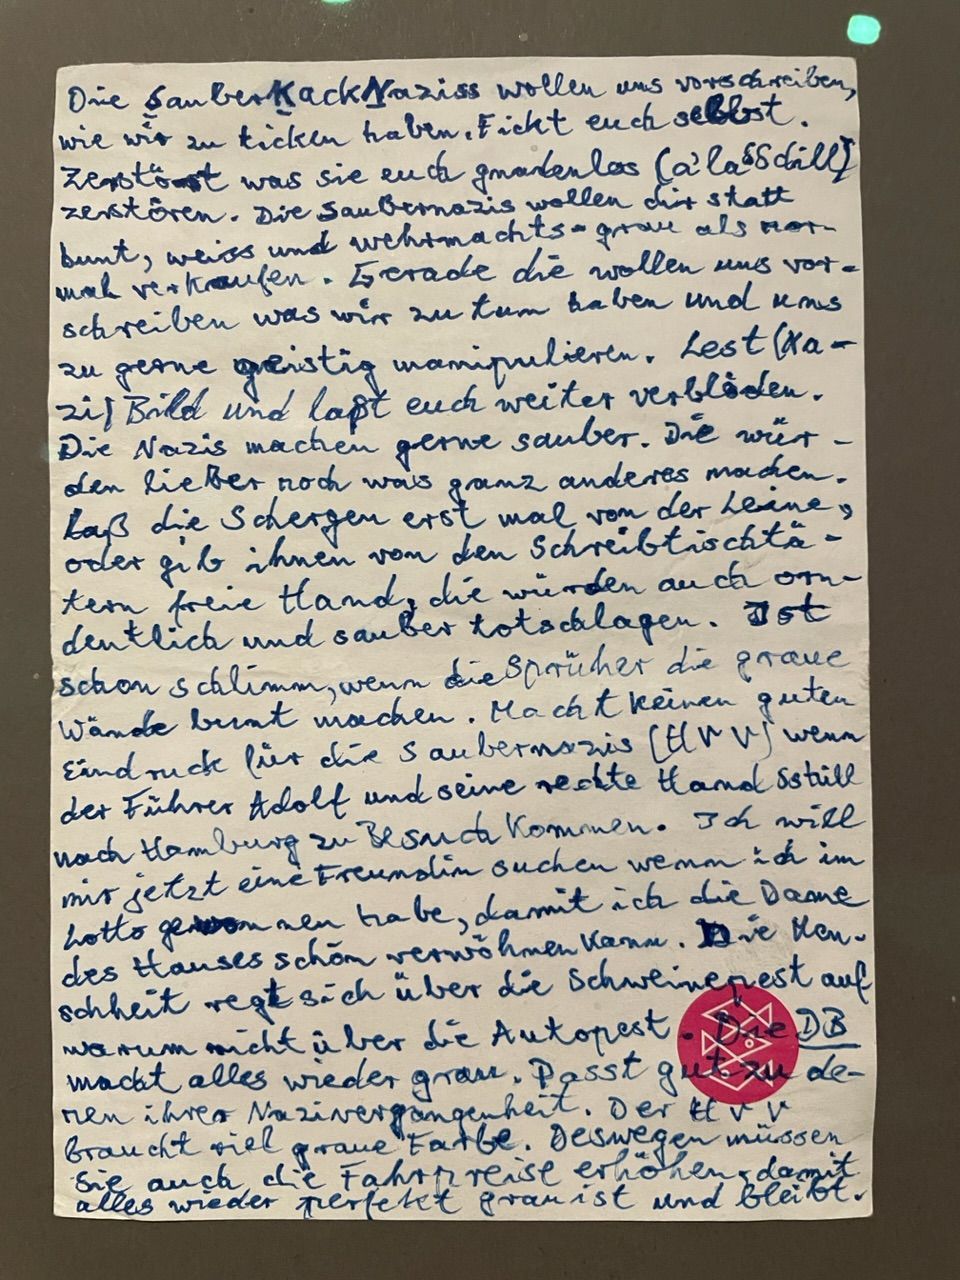 Die SauberKackNaziss wollen uns vorschreiben,
wie wir zu ticken haben. Fickt euch selbst.
Zerstört was sie euch gnadenlos (a'la SSchill)
zerstören. Die Saubernazis wollen dir statt
bunt, weiss und wehrmachts-grau als nor-
mal verkaufen. Gerade die wollen uns vor-
schreiben was wir zu tum haben und ums
zu gerne geistig manipulieren. Lest (Na-
zi) Bild und laßt euch weiter verblöden.
Die Nazis machen gerne sauber. Die wür-
den lieber noch was ganz anderes machen.
Laß die Schergen erst mal von der Leine,
oder gib ihnen von den Schreibtischtä-
tern freie Hand, die würden auch orn-
dentlich und sauber totschlagen. Ist
schon schlimm, wenn die Sprüher die graue
Wände bunt machen. Macht keinen guten
Eindruck für die Saubernazis (HVV) wenn
der Führer Adolf und seine rechte Hand SSchill
nach Hamburg zu Besuch kommen. Ich will
mir jetzt eine Freundin suchen wenn ich im
Lotto gewonnen habe, damit ich die Dame
des Hauses schön verwöhnen kann. Die Men-
schheit regt sich über die Schweinepest auf
warum nicht über die Autopest. Die DB
macht alles wieder grau. Passt gut zu de-
ren ihrer Nazivergangenheit. Der HVV
braucht viel graue Farbe. Deswegen müssen
Sie auch die Fahrpreise erhöhen, damit
alles wieder perfekt grau ist und bleibt.